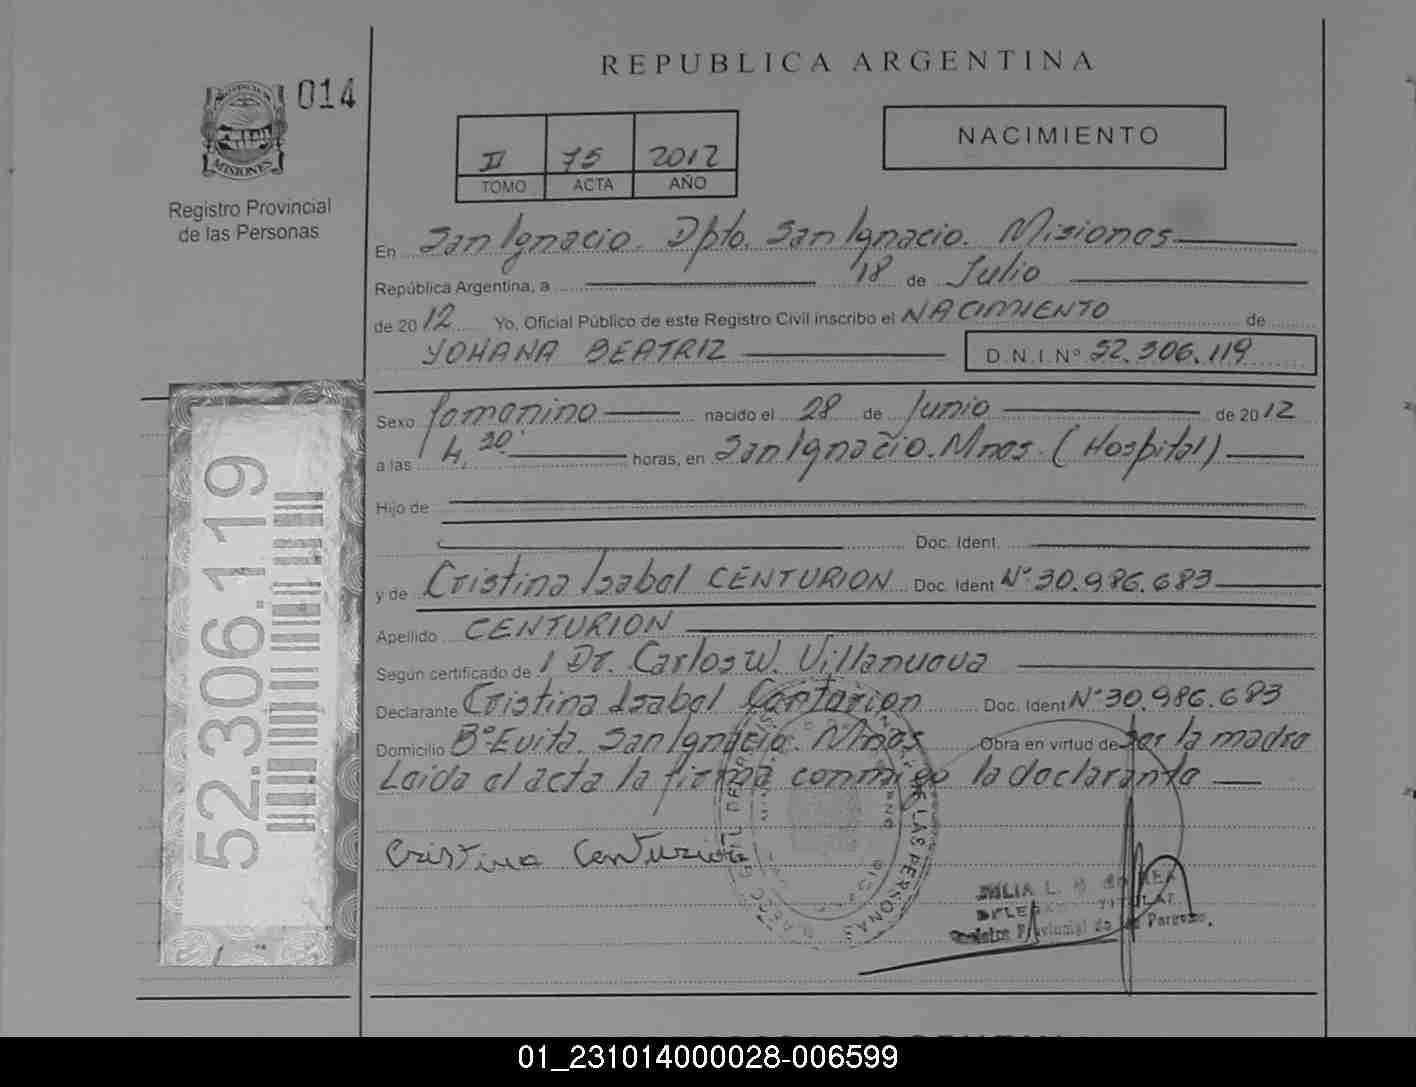 REPUBLICA ARGENTINA
014
MISIONES
Registro Provincial
de las Personas
II 75 2012
TOMO ACTA AÑO
NACIMIENTO
En San Ignacio. Dpto. San Ignacio. Misiones
República Argentina, a 18 de Julio
de 2012 Yo, Oficial Público de este Registro Civil inscribo el NACIMIENTO de
YOHANA BEATRIZ D.N.I.Nº 52.306.119
Sexo femenino nacido el 28 de Junio de 2012
a las 4,30 horas, en San Ignacio. Mnes. (Hospital)
Hijo de
Doc. Ident.
y de Cristina Isabel CENTURION Doc. Ident Nº 30.986.683
Apellido CENTURION
Según certificado de Dr. Carlos W. Villanueva
Declarante Cristina Isabel Centurion Doc. Ident Nº 30.986.683
Domicilio Bº Evita. San Ignacio. Mnes Obra en virtud de ser la madre
Leida el acta la firma conmigo la declarante
Cristina Centurion
JULIA L.
52.306.119
01_231014000028-006599